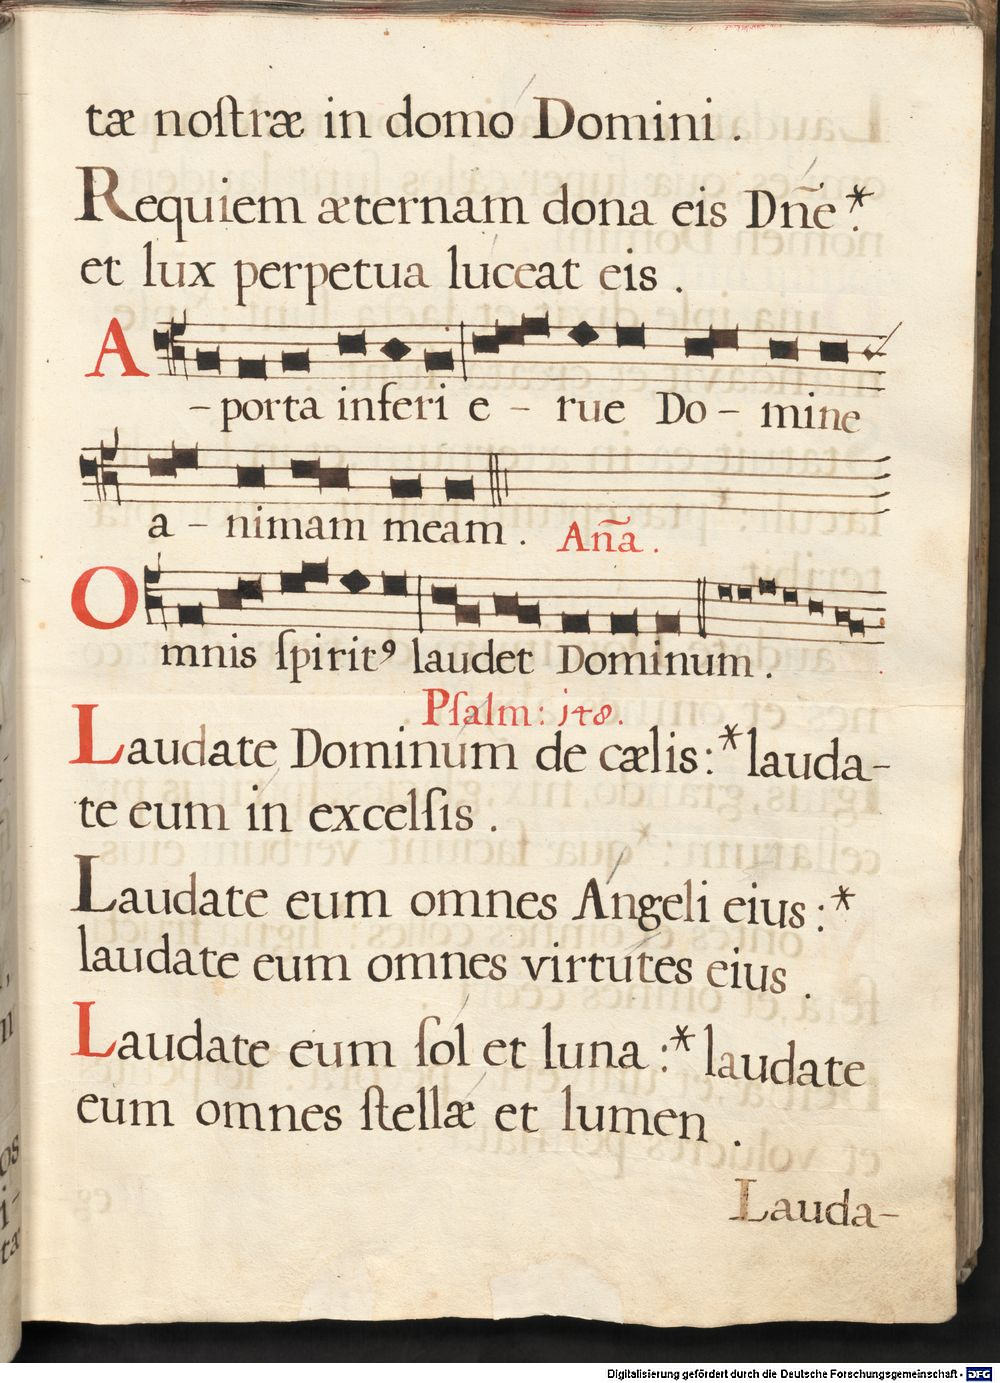 tæ noſtræ in domo Domini .
Requiem æternam dona eis Dñe *.
et lux perpetua luceat eis .
A
- porta inferi e - rue Do - mine
a - nimam meam . Aña .
O
mnis ſpiritꝰ laudet Dominum .
Pſalm: 148.
Laudate Dominum de cælis: * lauda-
te eum in excelſis .
Laudate eum omnes Angeli eius : *
laudate eum omnes virtutes eius .
Laudate eum ſol et luna : * laudate
eum omnes ſtellæ et lumen .
Lauda-
Digitalisierung gefördert durch die Deutsche Forschungsgemeinschaft - DFG